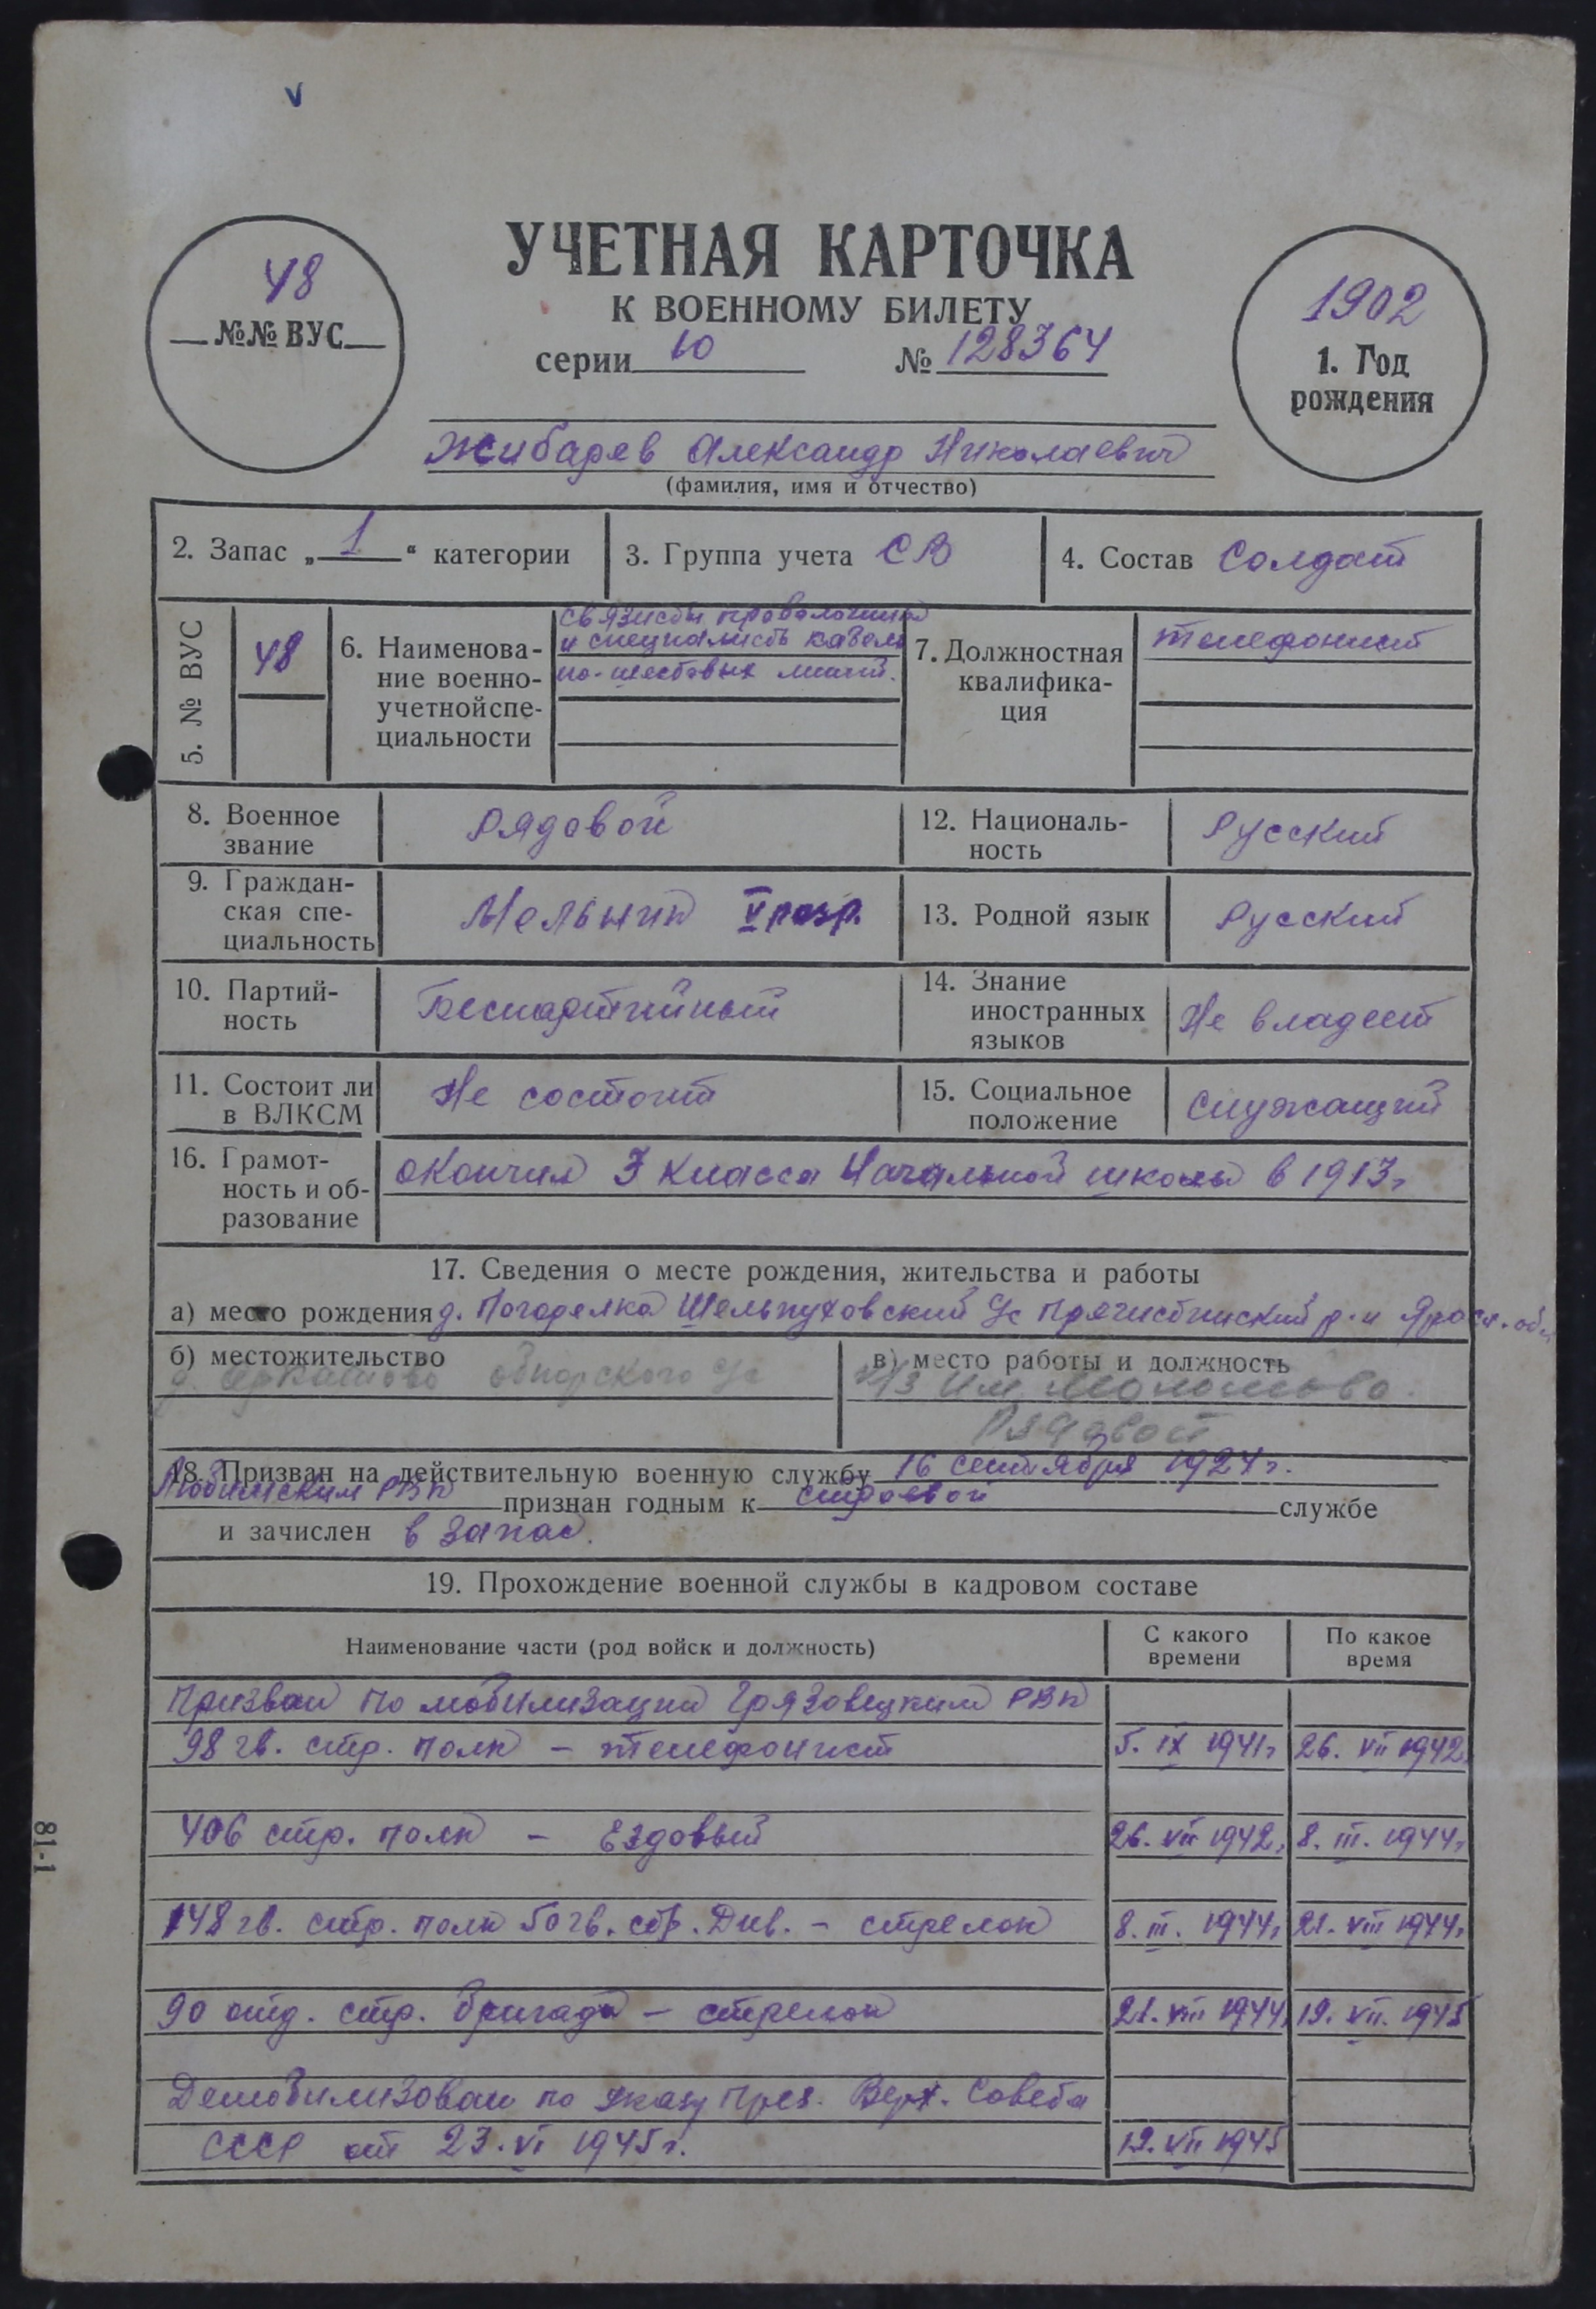 V
48
№№ ВУС
УЧЕТНАЯ КАРТОЧКА
К ВОЕННОМУ БИЛЕТУ
серии Ю № 128364
1902
1. Год
рождения
Жибарев Александр Николаевич
(фамилия, имя и отчество)
2. Запас „ 1 “ категории
3. Группа учета СВ
4. Состав Солдат
5. № ВУС
48
6. Наименова-
ние военно-
учетной спе-
циальности
связисты проволочной
и специалисты кабель
но-шестовых линий.
7. Должностная
квалифика-
ция
телефонист
8. Военное
звание
Рядовой
12. Националь-
ность
Русский
9. Граждан-
ская спе-
циальность
Мельник V разр.
13. Родной язык
Русский
10. Партий-
ность
Беспартийный
14. Знание
иностранных
языков
Не владеет
11. Состоит ли
в ВЛКСМ
Не состоит
15. Социальное
положение
Служащий
16. Грамот-
ность и об-
разование
окончил 3 класса Начальной школы в 1913г
17. Сведения о месте рождения, жительства и работы
а) место рождения д. Погорелка Шельпуховский с/с Пречистинский р-н Яросл. обл
б) местожительство
д. обнорского с/с
в) место работы и должность
к/з им.
Рядовой
18. Призван на действительную военную службу 16 сентября 1924г.
Любимским РВК признан годным к строевой службе
и зачислен в запас.
19. Прохождение военной службы в кадровом составе
Наименование части (род войск и должность)
С какого
времени
По какое
время
Призван по мобилизации Грязовецким РВК
98 гв. стр. полк – телефонист 5. IX 1941г 26. VII 1942
406 стр. полк – Ездовый 26. VII 1942г 8. III. 1944г
148 гв. стр. полк 50 гв. стр. Див. – стрелок 8. III. 1944г 21. VIII 1944г
90 отд. стр. бригада – стрелок 21. VIII 1944 19. VII. 1945
Демобилизован по указу През. Верх. Совета
СССР от 23. VI 1945г. 19. VII 1945
81-1